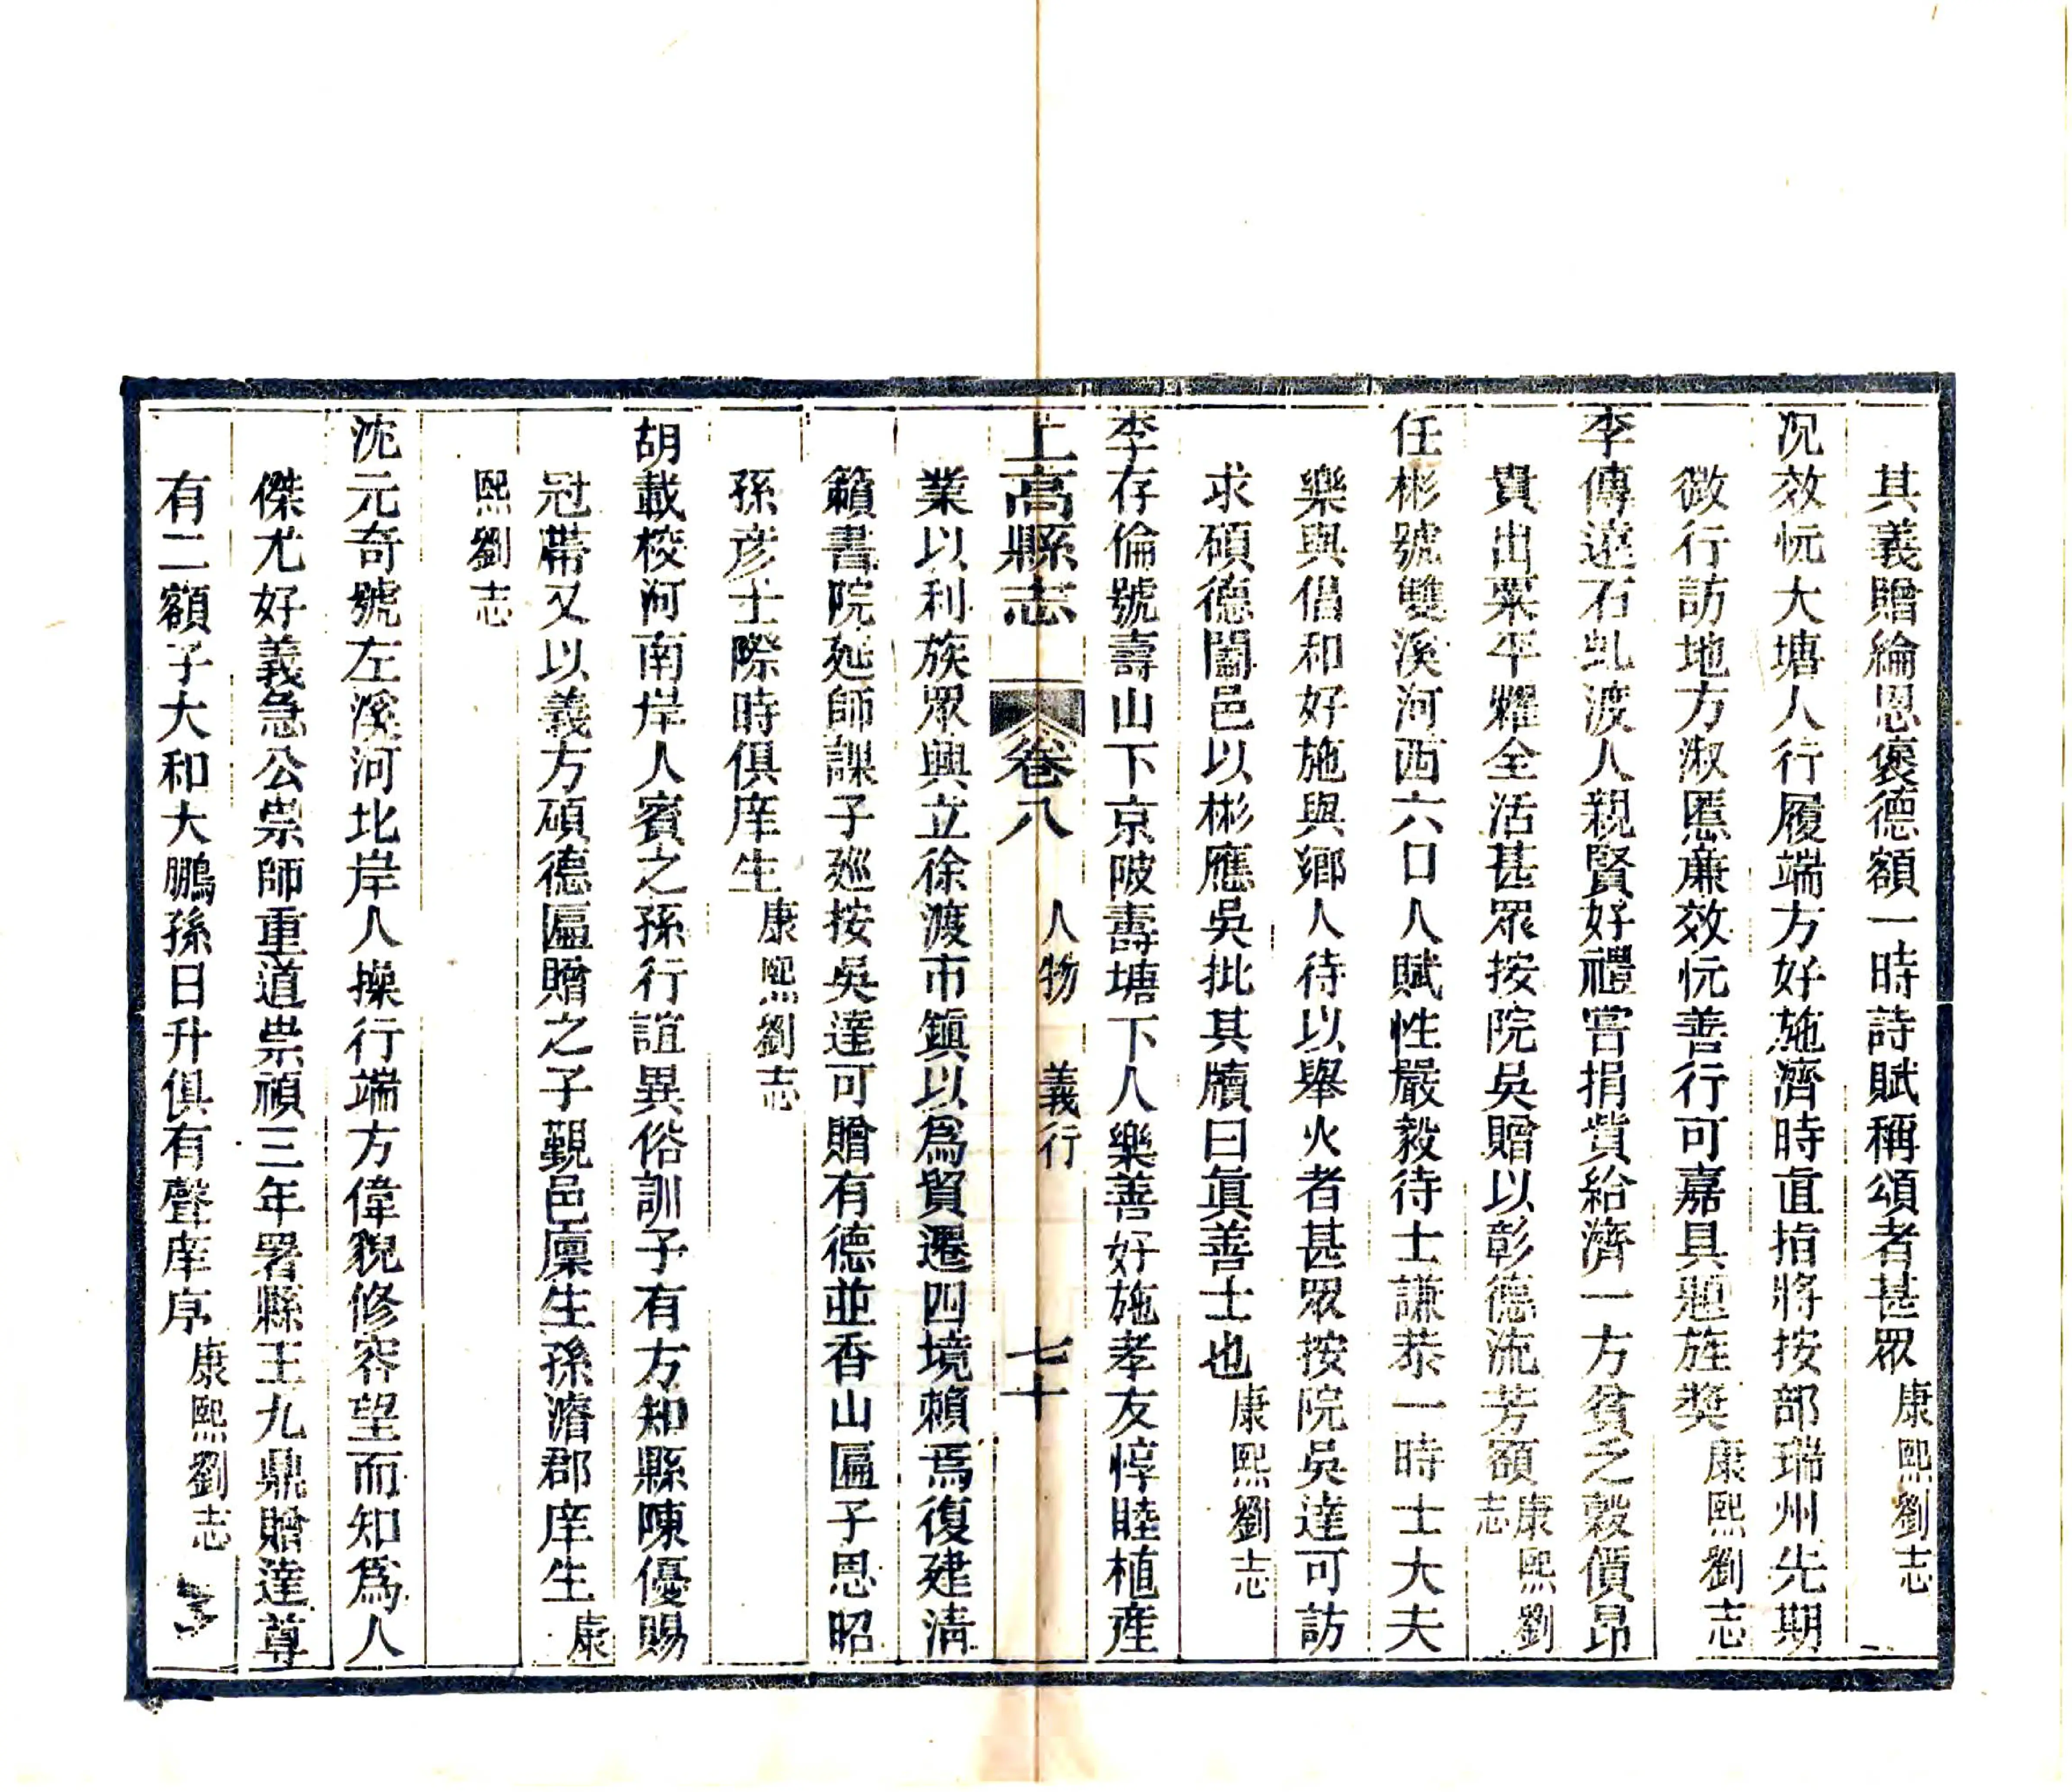 其義贈綸恩褒德額一時詩賦稱頌者甚眾康熙劉志
況效忨大塘人行履端方好施濟時直指將按部瑞州先期
微行訪地方淑慝亷效忨善行可嘉具題旌奬康熙劉志
李傳遠石虬渡人親賢好禮嘗捐貲給濟一方貧乏穀價昂
貴出粟平糶全活甚眾按院吳贈以彰德流芳額康熙劉志
任彬號雙溪河西六口人賦性嚴毅待士謙恭一時士大夫
樂與倡和好施與鄉人待以舉火者甚眾按院吳達可訪
求碩德闔邑以彬應吳批其牘曰眞善士也康熙劉志
李存倫號壽山下京陂壽塘下人樂善好施孝友惇睦植產
上高縣志 卷八 人物 義行 七十
業以利族眾興立徐渡市鎮以爲貿遷四境賴焉復建清
籟書院延師課子廵按吳達可贈有德並香山匾子思昭
孫彦士際時俱庠生康熙劉志
胡載梭河南岸人賓之孫行誼異俗訓子有方知縣陳優賜
冠帶又以義方碩德匾贈之子覲邑廩生孫濬郡庠生康
熙劉志
沈元奇號左溪河北岸人操行端方偉貌修容望而知爲人
傑尤好義急公崇師重道崇禎三年署縣王九鼎贈達尊
有二額子大和大鵬孫日升俱有聲庠序康熙劉志